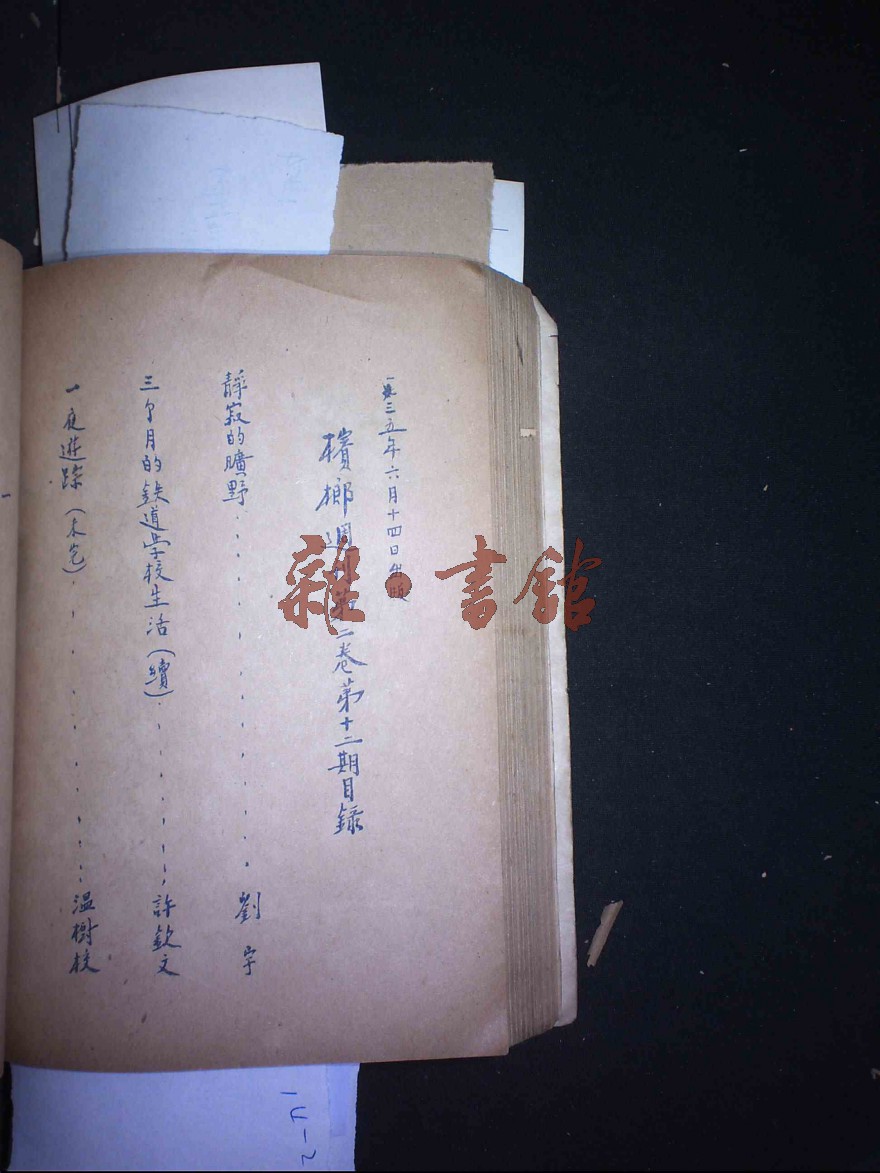 一九三五年六月十四日出版
檳榔週刊第二卷第十二期目錄
靜寂的曠野 劉宇
三个月的鉄道学校生活（續） 許欽文
一夜遊踪（未完） 温樹校
14-2
雜·書館